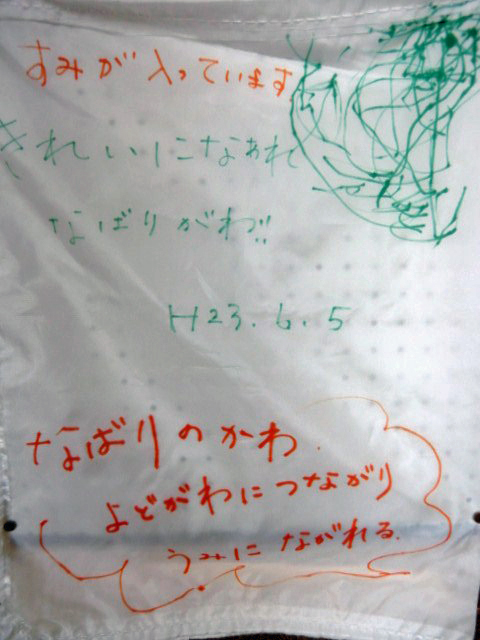 すみが入っています
きれいになぁれ
なばりがわ!!
H23.6.5
なばりのかわ
よどがわにつながり
うみにながれる.